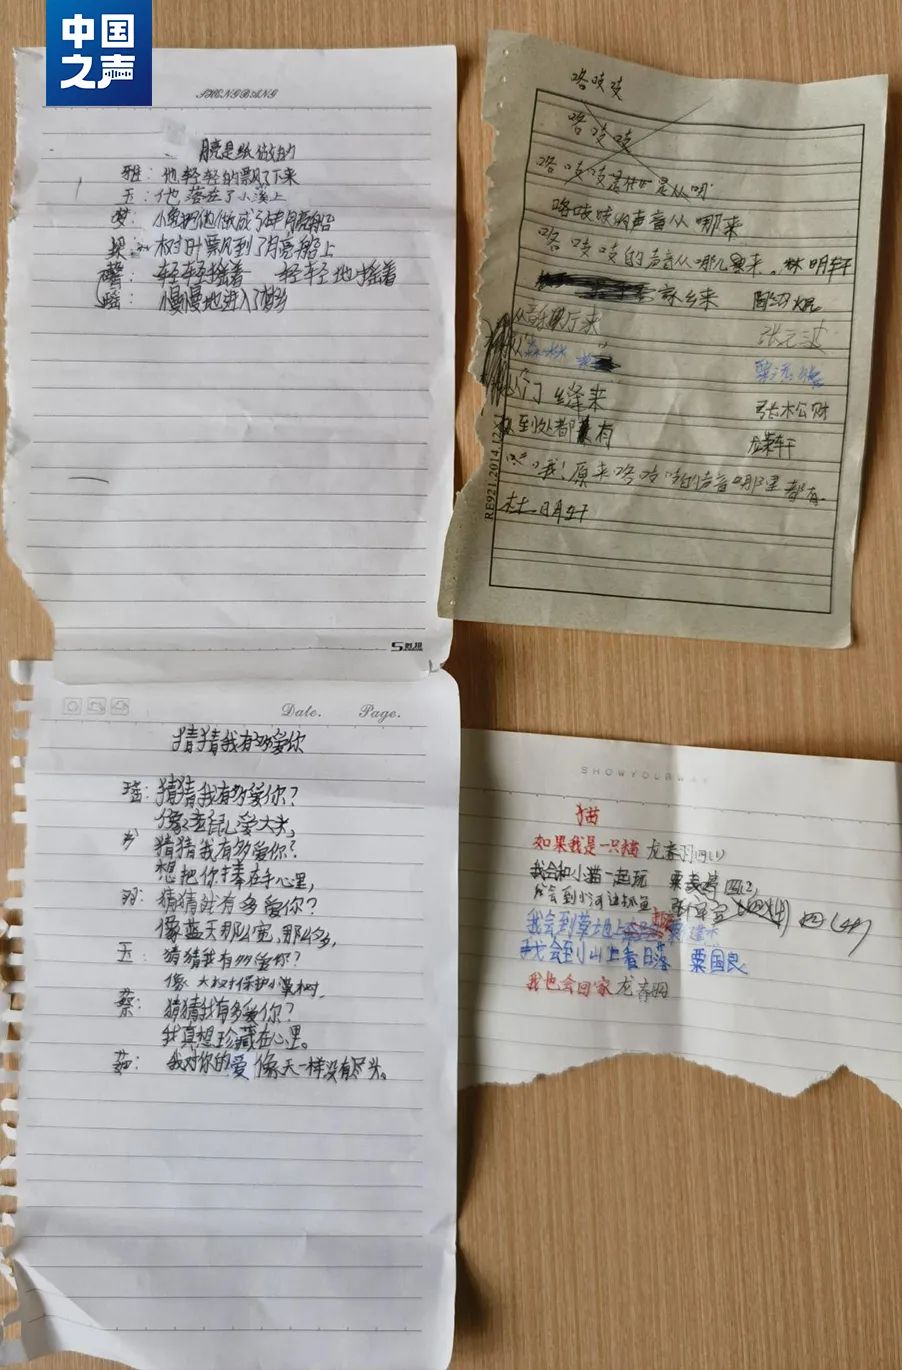 中国之声
SHENGBANG
月亮是纸做的
雅：他轻轻的飘了下来
玉：他落在了小溪上
梦：小象把他做成了月亮船
树叶飘到了月亮船上
馨：轻轻摇着 轻轻地摇着
瑶：慢慢地进入了梦乡
咯吱吱
咯吱吱
咯吱吱是从
咯吱吱的声音从哪来
咯吱吱的声音从哪儿里来，林明轩
家乡来
从音乐厅来 张元波
森林
门缝来 张林公财
到处都有
哦！原来咯吱吱的声音哪里都有。
杜明轩
RE921.2014.12
Date. Page.
猜猜我有多爱你
瑶：猜猜我有多爱你？
像老鼠爱大米，
梦：猜猜我有多爱你？
想把你捧在手心里，
羽：猜猜我有多爱你？
像蓝天那么宽，那么多，
玉：猜猜我有多爱你？
像大树保护小草树，
蔡：猜猜我有多爱你？
我真想珍藏在心里。
茹：我对你的爱像天一样没有尽头。
SHOWYOURWAY
猫
如果我是一只猫 龙
我会和小猫一起玩 粟
我会到小河边抓鱼
我会到草地上
我会到小山上看日落 粟国良
我也会回家 龙